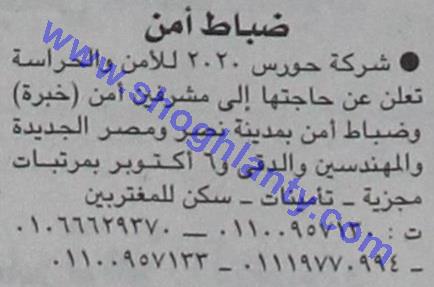 ضباط أمن
● شركة حورس ٢٠٢٠ للأمن والحراسة
تعلن عن حاجتها إلى مشرفين أمن (خبرة)
وضباط أمن بمدينة نصر ومصر الجديدة
والمهندسين والدقى و٦ أكتوبر بمرتبات
مجزية ـ تأمينات ـ سكن للمغتربين
ت : ٠١١٠٠٩٥٧١٣٠ ـ ٠١٠٦٦٦٢٩٣٧٠
ـ ٠١١١٩٧٧٠٩٩٤ ـ ٠١١٠٠٩٥٧١٣٣
www.shoghlanty.com